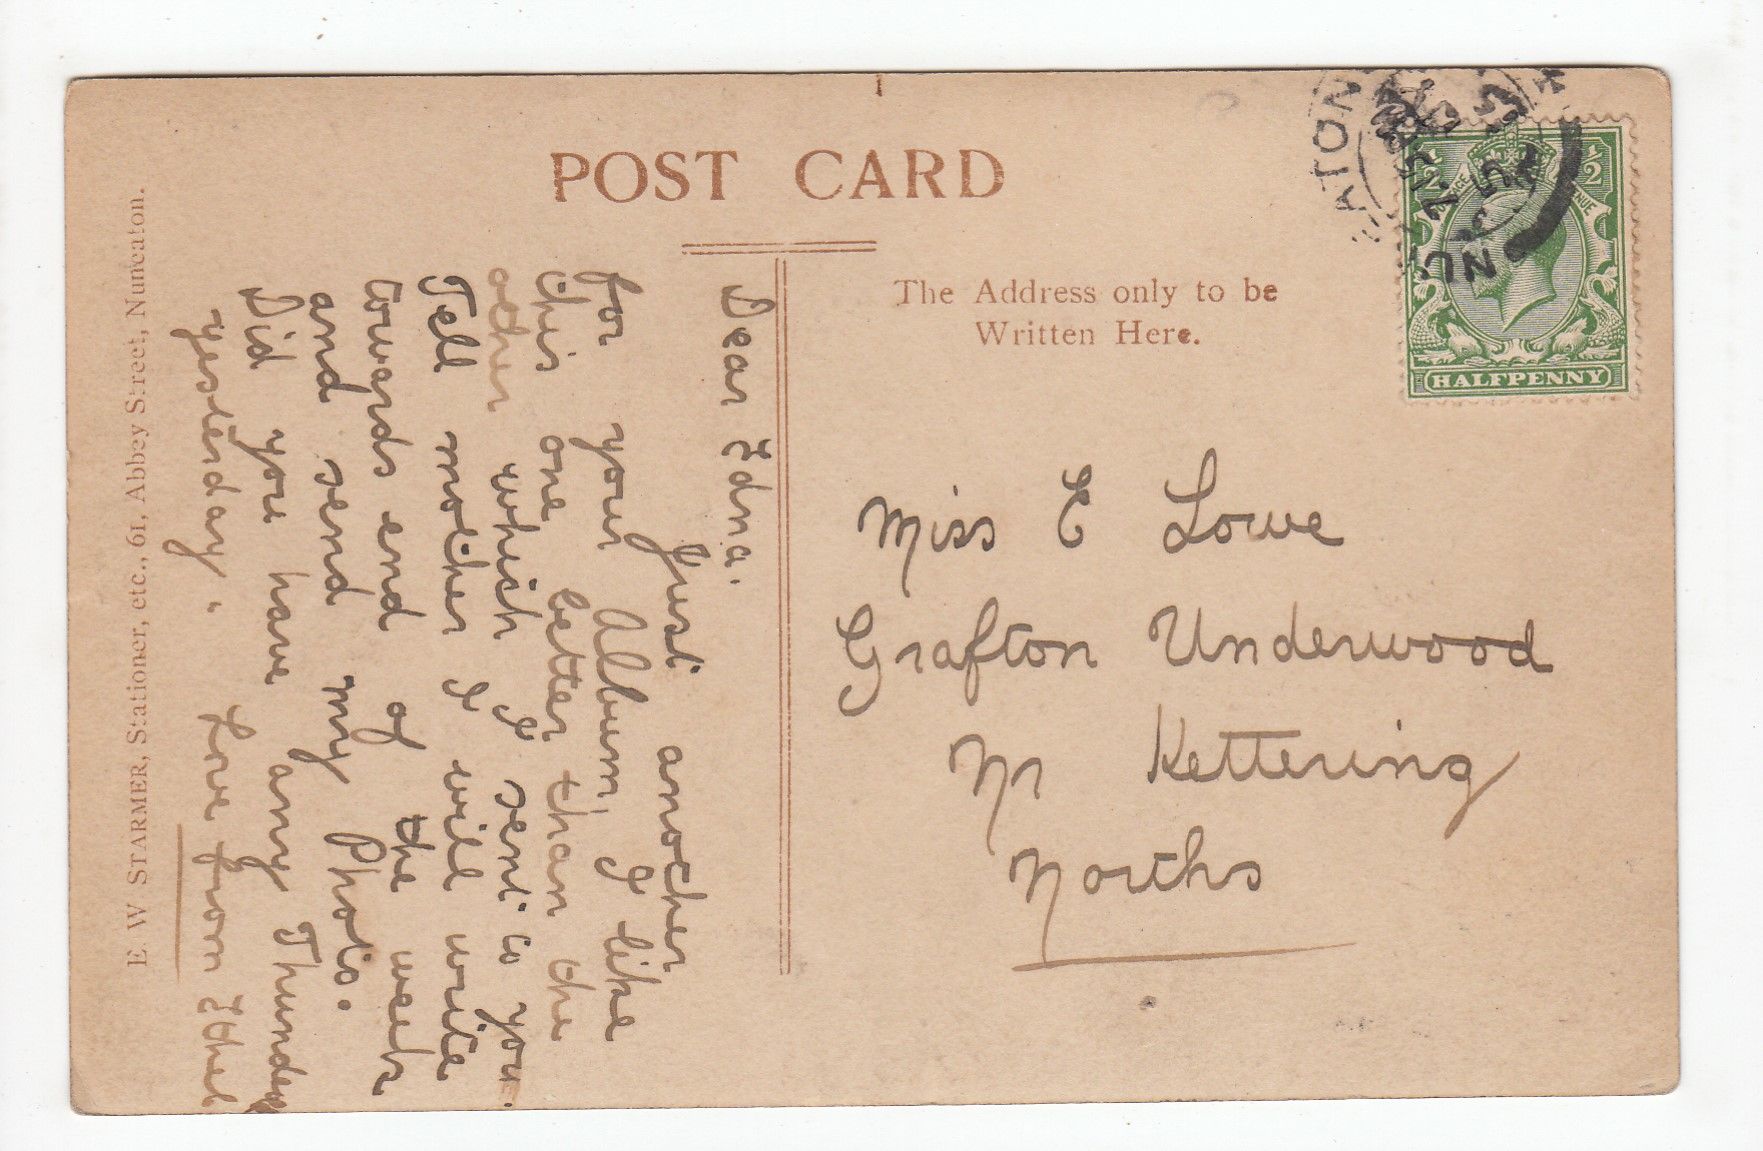 POST CARD
The Address only to be
Written Here.
HALFPENNY
Miss E Lowe
Grafton Underwood
Nr Kettering
Norths
Dear Edna.
Just another
for your Album, I like
this one better than the
other which I sent to you.
Tell mother I will write
towards end of the week
and send my Photo.
Did you have any Thunder
yesterday. Love from Ethel
E. W STARMER, Stationer, etc., 61, Abbey Street, Nuneaton.